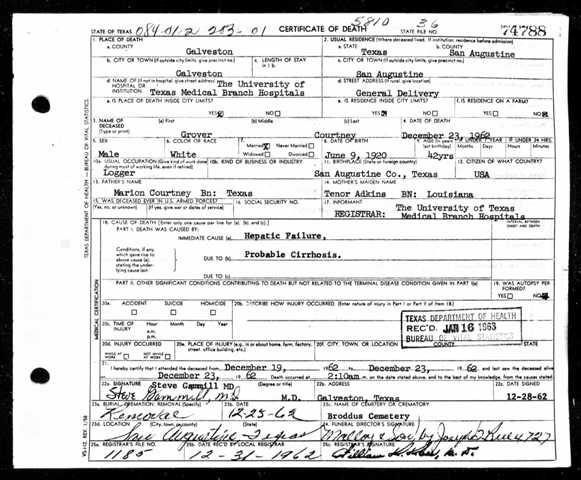 STATE OF TEXAS 084-01-2 283-01 CERTIFICATE OF DEATH 5810 36 STATE FILE NO. 74788
1. PLACE OF DEATH 2. USUAL RESIDENCE (Where deceased lived. If institution: residence before admission)
a. COUNTY Galveston a. STATE Texas b. COUNTY San Augustine
b. CITY OR TOWN (If outside city limits, give precinct no.) c. LENGTH OF STAY in 1 b. c. CITY OR TOWN (If outside city limits, give precinct no.)
Galveston San Augustine
d. NAME OF (If not in hospital, give street address) HOSPITAL OR INSTITUTION The University of Texas Medical Branch Hospitals d. STREET ADDRESS (If rural, give location) General Delivery
e. IS PLACE OF DEATH INSIDE CITY LIMITS? YES NO e. IS RESIDENCE INSIDE CITY LIMITS? YES NO f. IS RESIDENCE ON A FARM? YES NO
3. NAME OF DECEASED (Type or print) (a) First (b) Middle (c) Last 4. DATE OF DEATH
Grover Courtney December 23, 1962
5. SEX 6. COLOR OR RACE 7. Married Never Married Widowed Divorced 8. DATE OF BIRTH 9. AGE (In years last birthday) IF UNDER 1 YEAR IF UNDER 24 HRS.
Male White June 9, 1920 42yrs
10a. USUAL OCCUPATION (Give kind of work done during most of working life, even if retired) 10b. KIND OF BUSINESS OR INDUSTRY 11. BIRTHPLACE (State or foreign country) 12. CITIZEN OF WHAT COUNTRY?
Logger San Augustine Co., Texas USA
13. FATHER'S NAME 14. MOTHER'S MAIDEN NAME
Marion Courtney Bn: Texas Tenor Adkins BN: Louisiana
15. WAS DECEASED EVER IN U.S. ARMED FORCES? 16. SOCIAL SECURITY NO. 17. INFORMANT
(Yes, no, or unknown) (If yes, give war or dates of service) REGISTRAR: The University of Texas Medical Branch Hospitals
18. CAUSE OF DEATH (Enter only one cause per line for (a), (b), and (c).) INTERVAL BETWEEN ONSET AND DEATH
PART I. DEATH WAS CAUSED BY:
IMMEDIATE CAUSE (a) Hepatic Failure,
Conditions, if any, which gave rise to above cause (a), stating the underlying cause last. DUE TO (b) Probable Cirrhosis.
DUE TO (c)
PART II. OTHER SIGNIFICANT CONDITIONS CONTRIBUTING TO DEATH BUT NOT RELATED TO THE TERMINAL DISEASE CONDITION GIVEN IN PART I(a) 19. WAS AUTOPSY PERFORMED? YES NO
20a. ACCIDENT SUICIDE HOMICIDE 20b. DESCRIBE HOW INJURY OCCURRED. (Enter nature of injury in Part I or Part II of item 18.)
20c. TIME OF INJURY Hour Month Day Year a.m. p.m.
TEXAS DEPARTMENT OF HEALTH
REC'D. JAN 16 1963
BUREAU OF VITAL STATISTICS
20d. INJURY OCCURRED WHILE AT WORK NOT WHILE AT WORK 20e. PLACE OF INJURY (e.g. in or about home, farm, factory, street, office building, etc.) 20f. CITY, TOWN, OR LOCATION COUNTY STATE
21. I hereby certify that I attended the deceased from December 19, 1962 to December 23, 1962 and last saw the deceased alive
on December 23, 1962 Death occurred at 2:10am m. on the date stated above, and to the best of my knowledge, from the causes stated
22a. SIGNATURE Steve Gammill MD (Degree or title) 22b. ADDRESS 22c. DATE SIGNED
Steve Gammill, M.D. M.D. Galveston, Texas 12-28-62
23a. BURIAL, CREMATION, REMOVAL (Specify) 23b. DATE 23c. NAME OF CEMETERY OR CREMATORY
Removal 12-23-62 Broddus Cemetery
23d. LOCATION (City, town, or county) (State) 24. FUNERAL DIRECTOR'S SIGNATURE
San Augustine Texas Malloy & Son, by Joseph
25a. REGISTRAR'S FILE NO. 25b. DATE REC'D BY LOCAL REGISTRAR 25c. REGISTRAR'S SIGNATURE
1185 12-31-1962 William
TEXAS DEPARTMENT OF HEALTH — BUREAU OF VITAL STATISTICS
MEDICAL CERTIFICATION